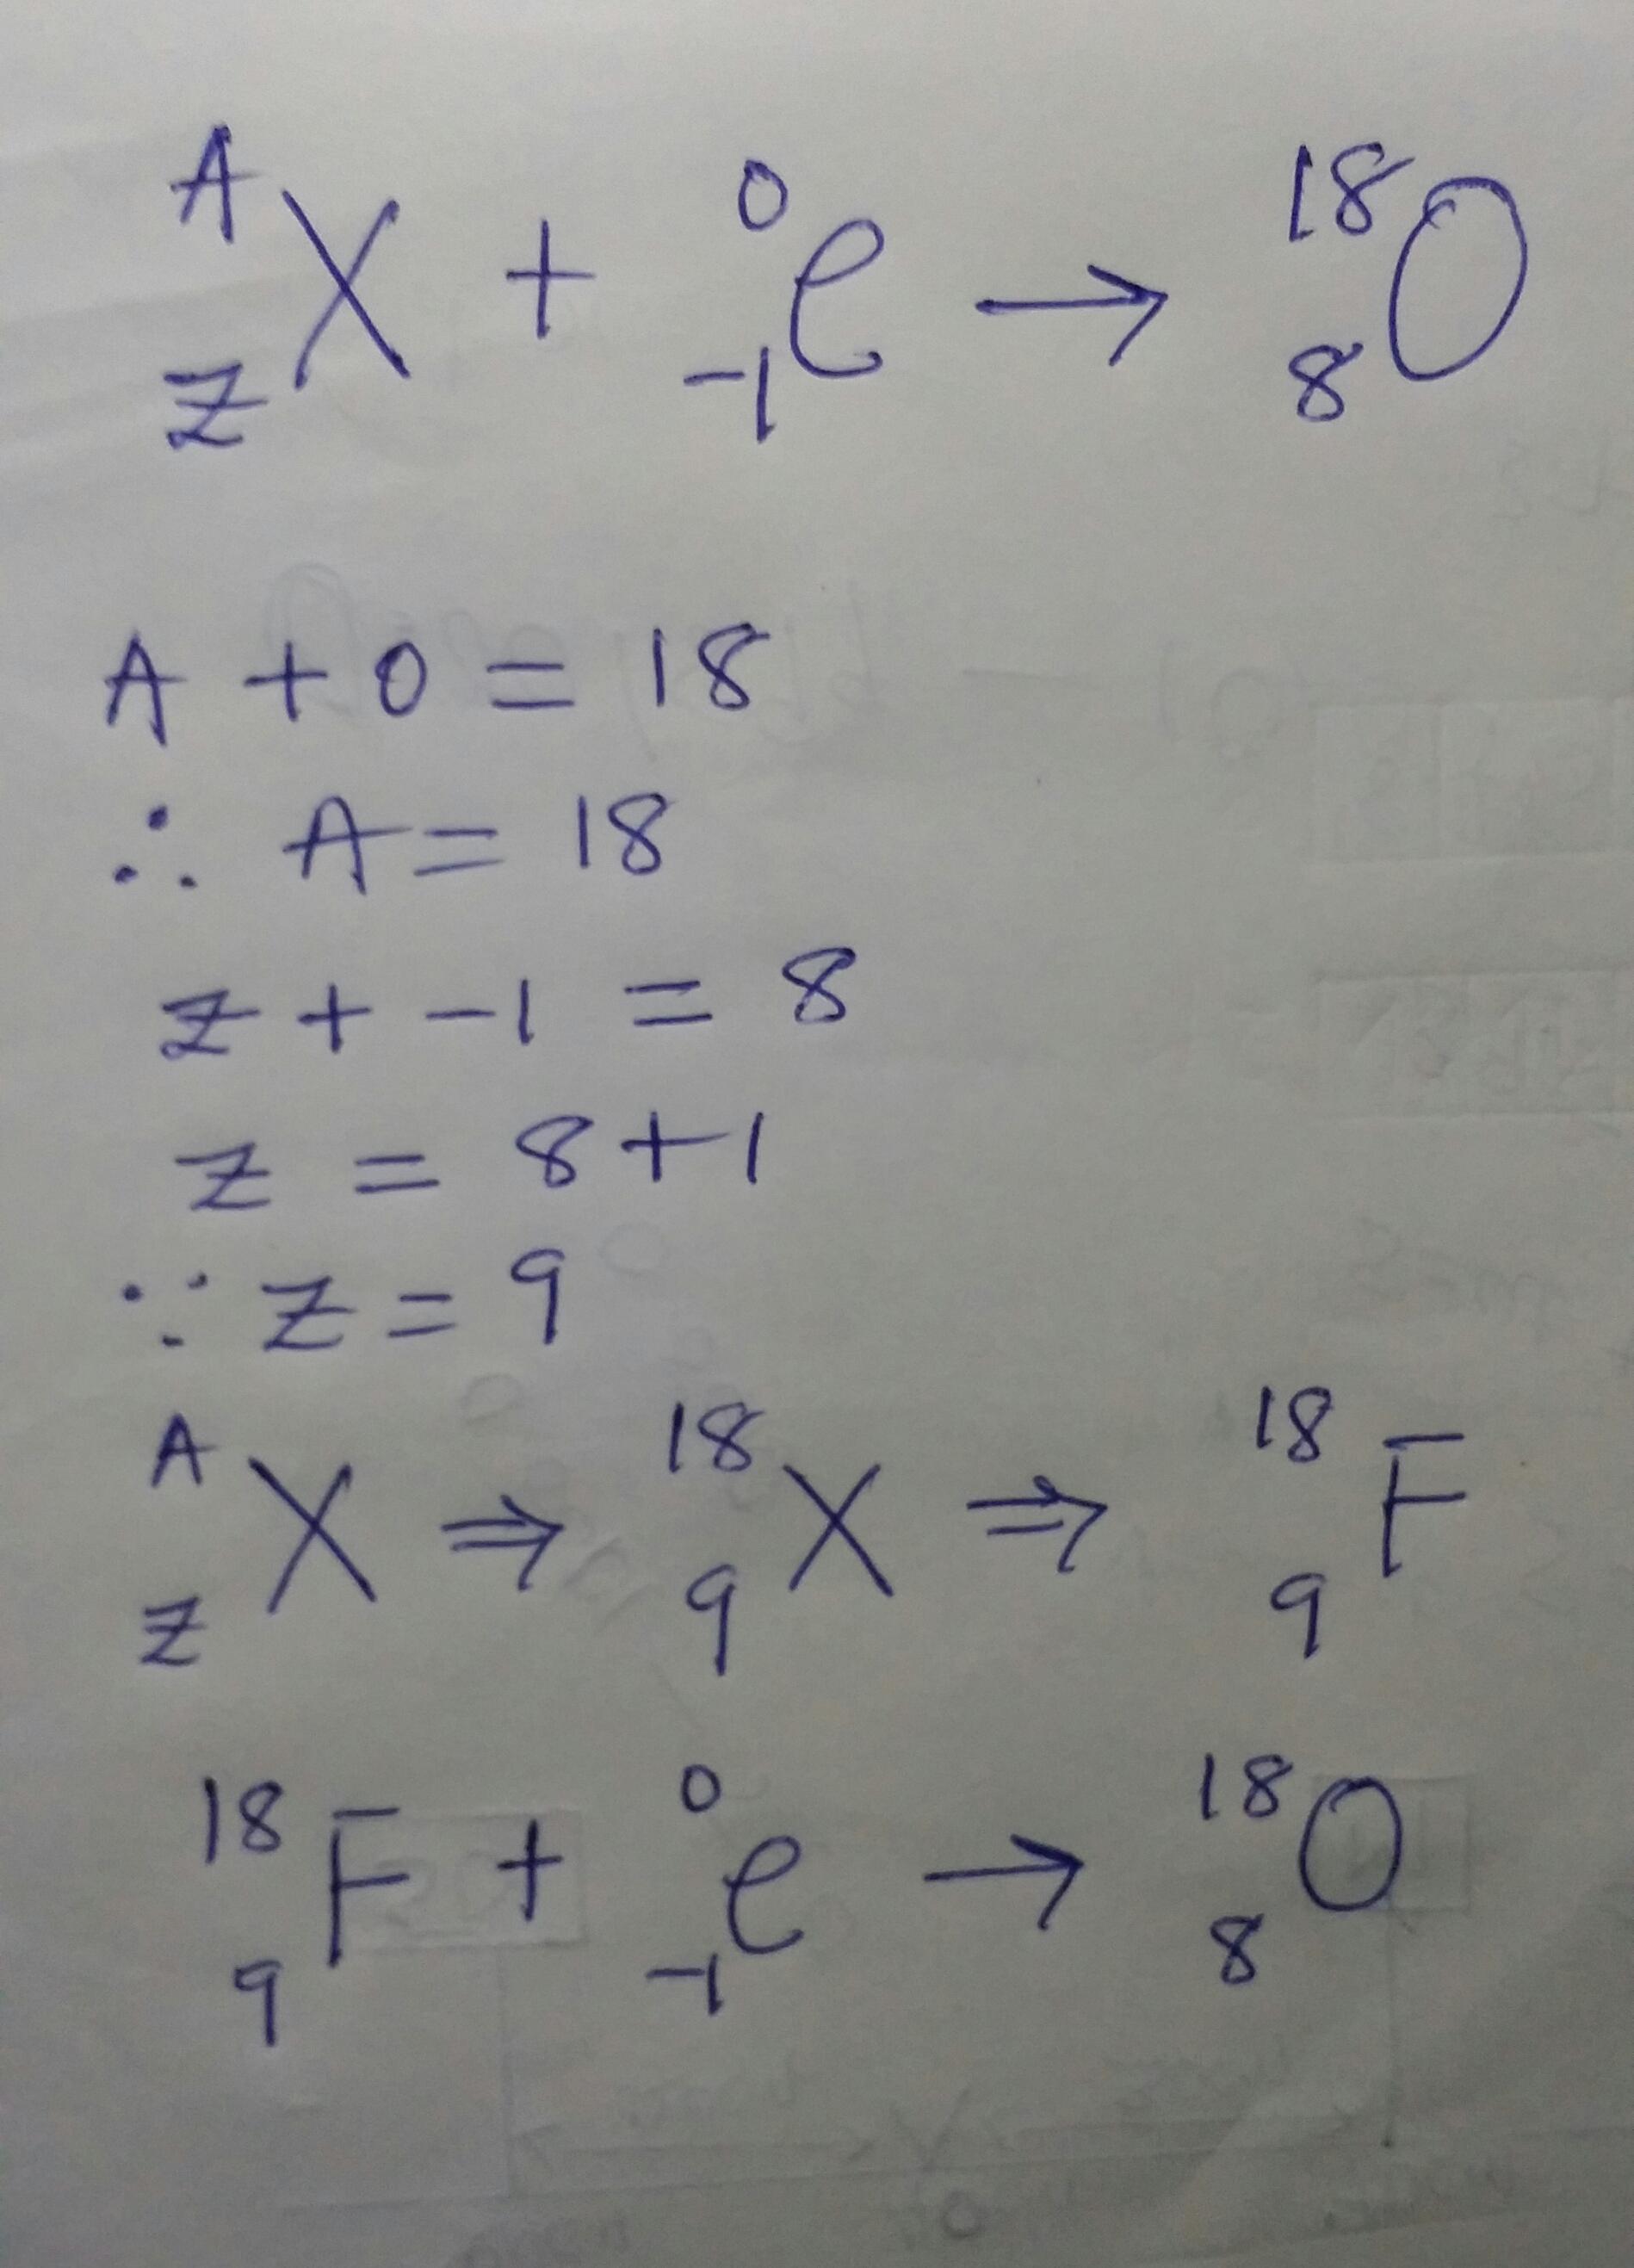 ᴬ_Z X + ⁰₋₁e → ¹⁸₈O
A + 0 = 18
∴ A = 18
Z + -1 = 8
Z = 8+1
∵ Z = 9
ᴬ_Z X ⇒ ¹⁸₉X ⇒ ¹⁸₉F
¹⁸₉F + ⁰₋₁e → ¹⁸₈O